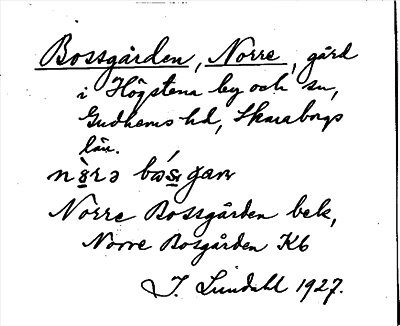 Bossgården, Norre, gård
i Högstena by och sn,
Gudhems hd, Skaraborgs
län.
Norre Bossgården bek,
Norre Bosgården Kb
J. Lundahl 1927.